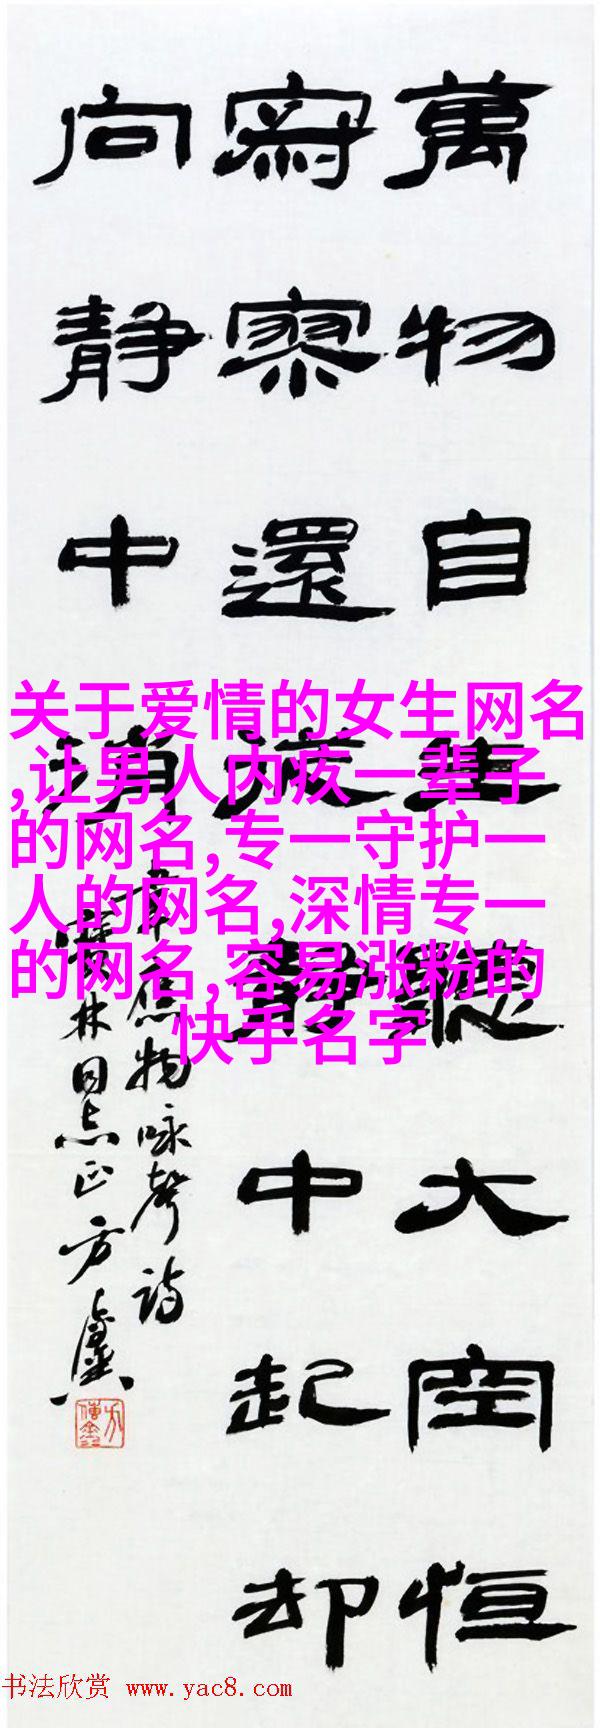 萬物自生聽大空恒
寂寥還從靜中起却
向静中消
韋應物咏聲詩
寶林同志正方傳鑫
关于爱情的女生网名
,让男人内疚一辈子
的网名,专一守护一
人的网名,深情专一
的网名,容易涨粉的
快手名字
书法欣赏 www.yac8.com